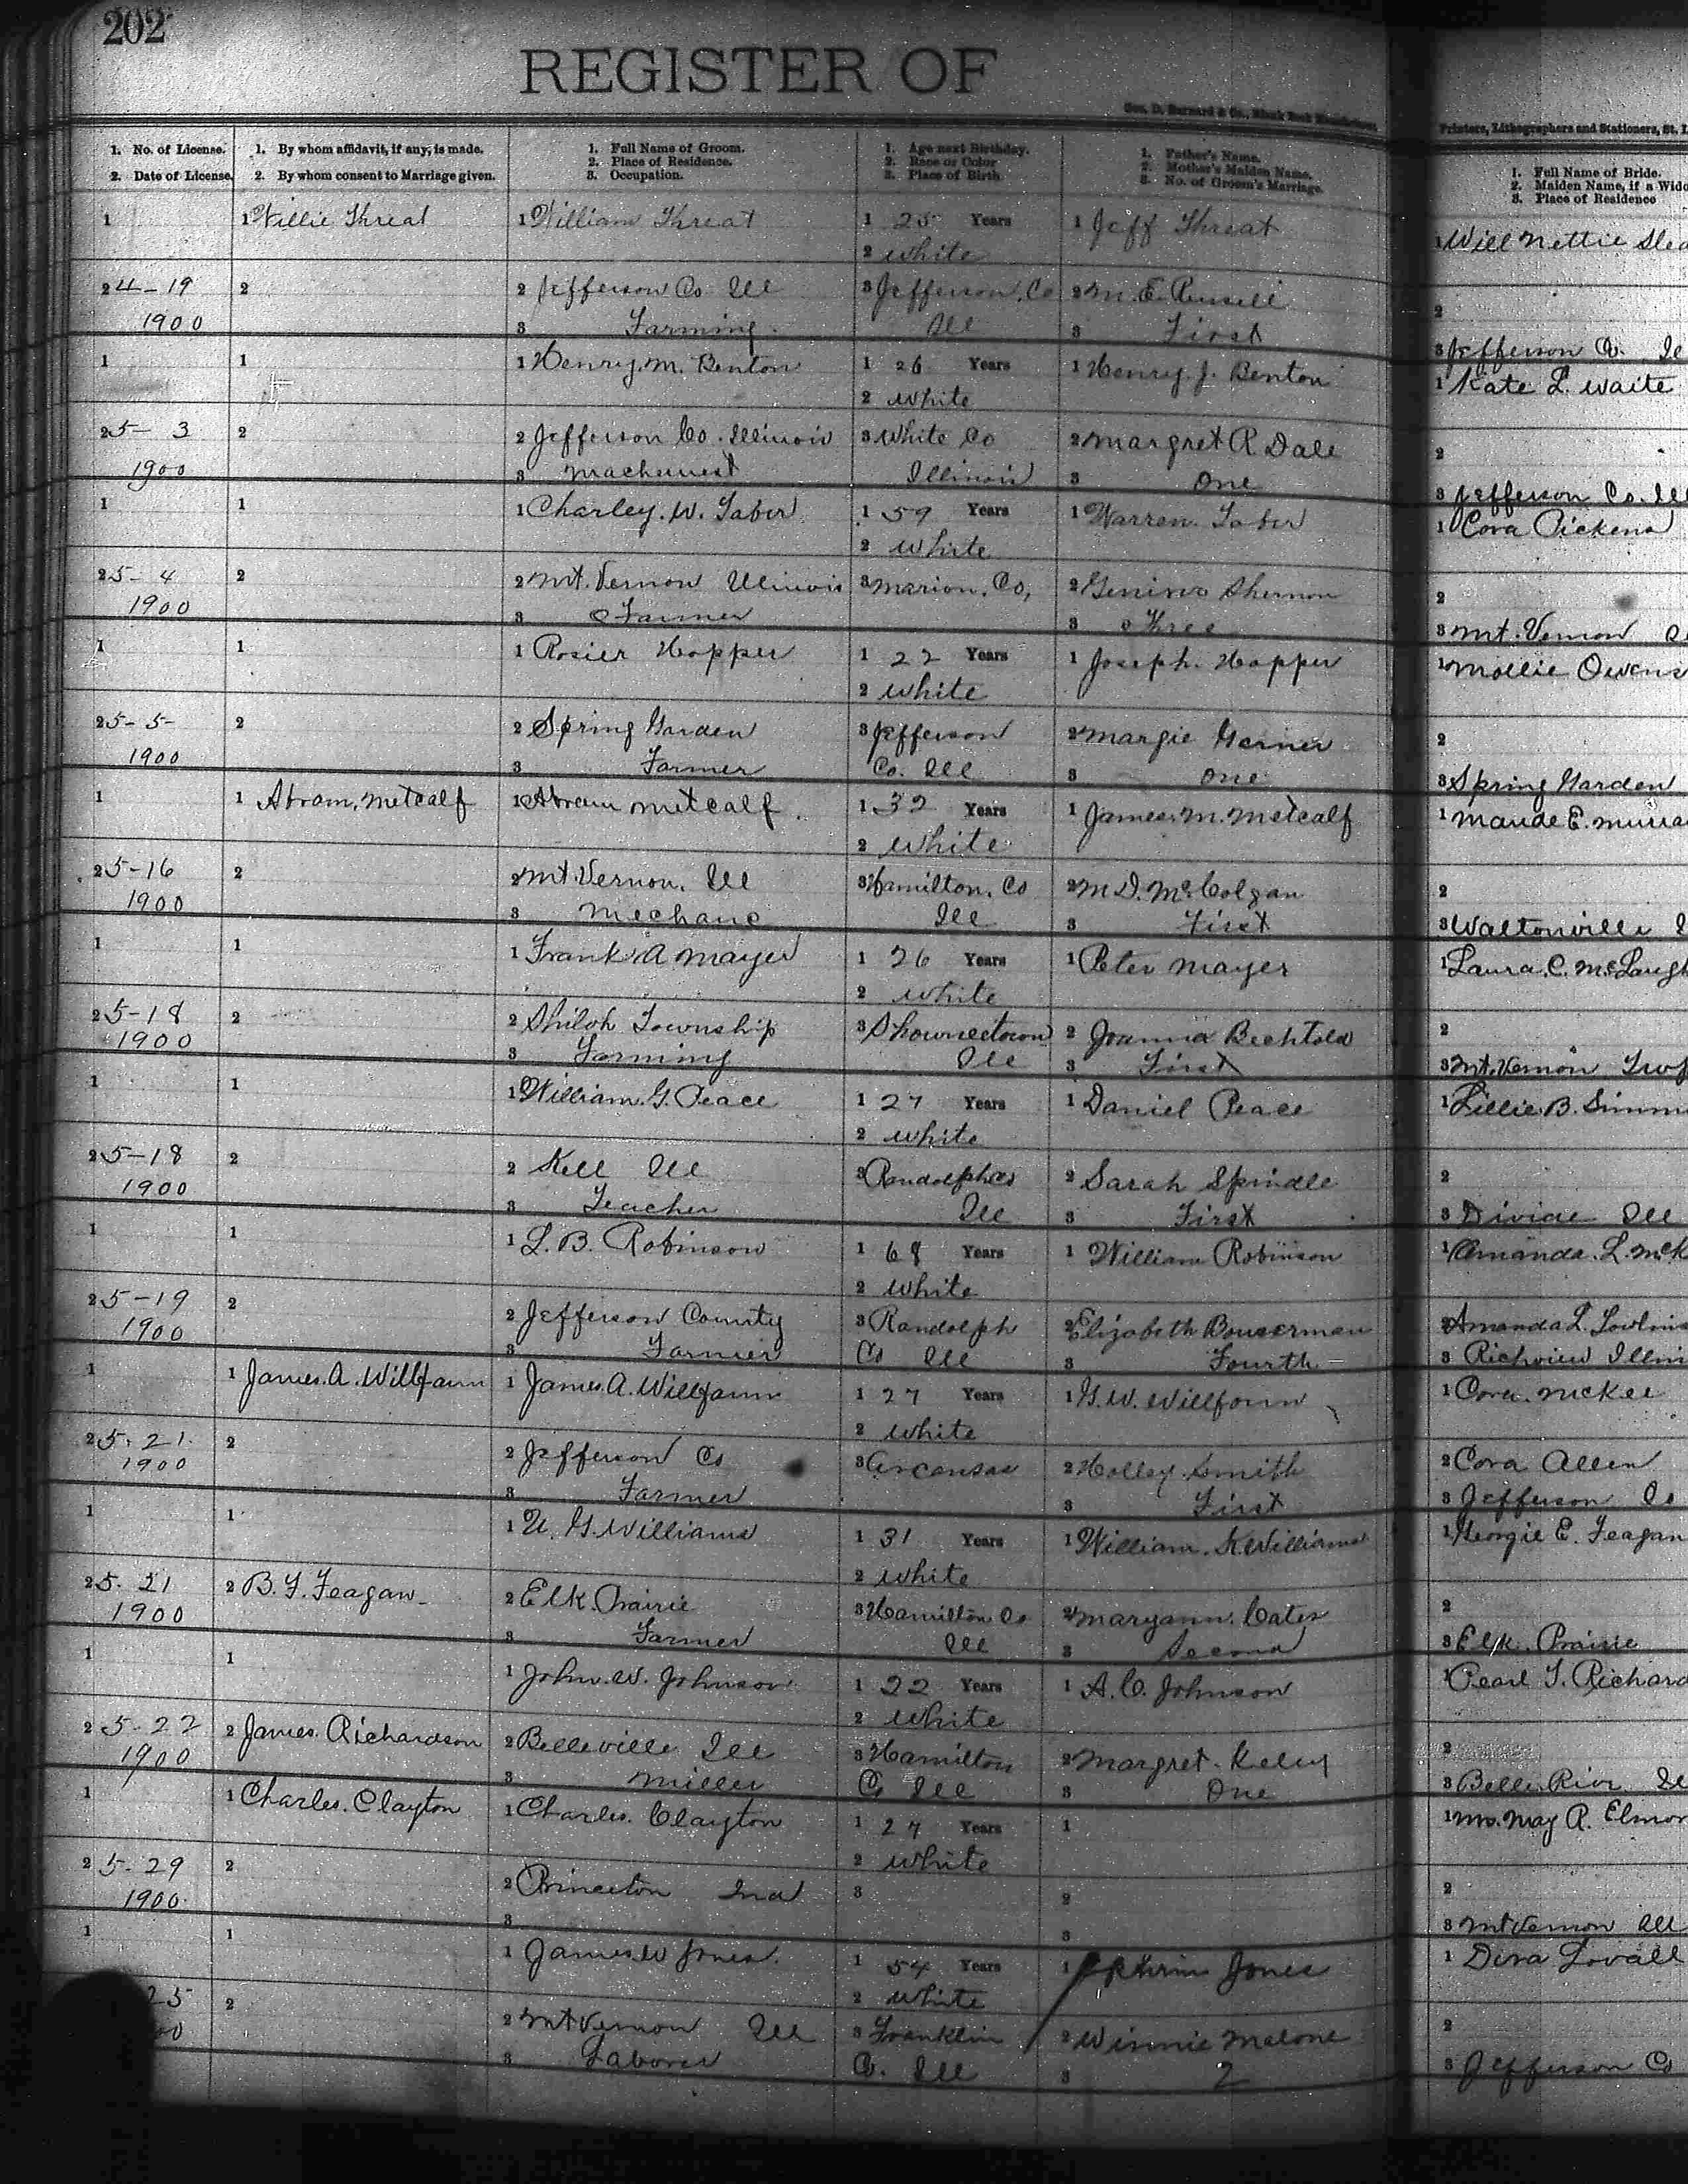 202
REGISTER OF
Geo. D. Barnard & Co., Blank Book
Printers, Lithographers and Stationers, St. L
1. No. of License.
2. Date of License.
1. By whom affidavit, if any, is made.
2. By whom consent to Marriage given.
1. Full Name of Groom.
2. Place of Residence.
3. Occupation.
1. Age next Birthday.
2. Race or Color
3. Place of Birth
1. Father's Name.
2. Mother's Maiden Name.
3. No. of Groom's Marriage.
1. Full Name of Bride.
2. Maiden Name, if a Wido
3. Place of Residence
1
2 4-19
1900
1 Willie Threat
2
1 William Threat
2 Jefferson Co Ill
3 Farming
1 25 Years
2 white
3 Jefferson, Co
Ill
1 Jeff Threat
2 M. E. Russell
3 First
1 Will Nettie
2
3 Jefferson Co. Il
1
2 5-3
1900
1
2
1 Henry. M. Benton
2 Jefferson Co. Illinois
3 Machenest
1 26 Years
2 White
3 White Co
Illinois
1 Henry. J. Benton
2 Margret R. Dale
3 One
1 Kate L. Waite
2
3 Jefferson Co. Ill
1
2 5-4
1900
1
2
1 Charley. W. Taber
2 Mt. Vernon Illinois
3 Farmer
1 59 Years
2 White
3 Marion. Co,
1 Warren Taber
2
3 Three
1 Cora Pickens
2
3 Mt. Vernon
1
2 5-5-
1900
1
2
1 Rosier Hopper
2 Spring Garden
3 Farmer
1 22 Years
2 White
3 Jefferson
Co. Ill
1 Joseph. Hopper
2 Margie Gerner
3 One
1 Mollie Owens
2
3 Spring Garden
1
2 5-16
1900
1 Abram, Metcalf
2
1 Abram Metcalf
2 Mt. Vernon. Ill
3 Mechanc
1 32 Years
2 White
3 Hamilton, Co
Ill
1 James. M. Metcalf
2 M D. McColgan
3 First
1 Maude E. Murra
2
3 Waltonville I
1
2 5-18
1900
1
2
1 Frank A Mayer
2 Shiloh Township
3 Farming
1 26 Years
2 White
3 Shawneetown
Ill
1 Peter Mayer
2 Joanna Bechtold
3 First
1 Laura. C. McLaugh
2
3 Mt. Vernon Twp
1
2 5-18
1900
1
2
1 William. G. Peace
2 Kell Ill
3 Teacher
1 27 Years
2 white
3 Randolph Co
Ill
1 Daniel Peace
2 Sarah Spindle
3 First
1 Lillie B. Simm
2
3 Divide Ill
1
2 5-19
1900
1
2
1 L. B. Robinson
2 Jefferson County
3 Farmer
1 68 Years
2 White
3 Randolph
Co Ill
1 William Robinson
2 Elizabeth Bouserman
3 Fourth
1 Amanda. L. McK
2 Amanda L.
3 Richview Illin
1
2 5.21.
1900
1 James. A. Willfann
2
1 James. A. Willfann
2 Jefferson Co
3 Farmer
1 27 Years
2 White
3 Arcansas
1 G. W. Willfonn
2 Holley Smith
3 First
1 Cora. McKee
2 Cora Allen
3 Jefferson Co
1
2 5.21
1900
1
2 B. F. Feagan
1 U. G. Williams
2 Elk. Prairie
3 Farmer
1 31 Years
2 White
3 Hamilton Co
Ill
1 William. K Williams
2 Maryann. Cates
3 Second
1 Georgie E. Feagan
2
3 Elk. Prairie
1
2 5-22
1900
1
2 James. Richardson
1 John. W. Johnson
2 Belleville Ill
3 Miller
1 22 Years
2 White
3 Hamilton
Co Ill
1 A. C. Johnson
2 Margret. Keley
3 One
1 Pearl T. Richard
2
3 Belle River Il
1
2 5-29
1900
1 Charles. Clayton
2
1 Charles. Clayton
2 Princeton Ind
3
1 27 Years
2 White
3
1
2
3
1 Mrs. May R. Elmor
2
3 Mt Vernon Ill
1
25
00
1
2
1 James. W Jones.
2 Mt Vernon Ill
3 Laborer
1 54 Years
2 White
3 Franklin
Co. Ill
1 Jones
2 Winnie Malone
3 2
1 Dora Lovall
2
3 Jefferson Co